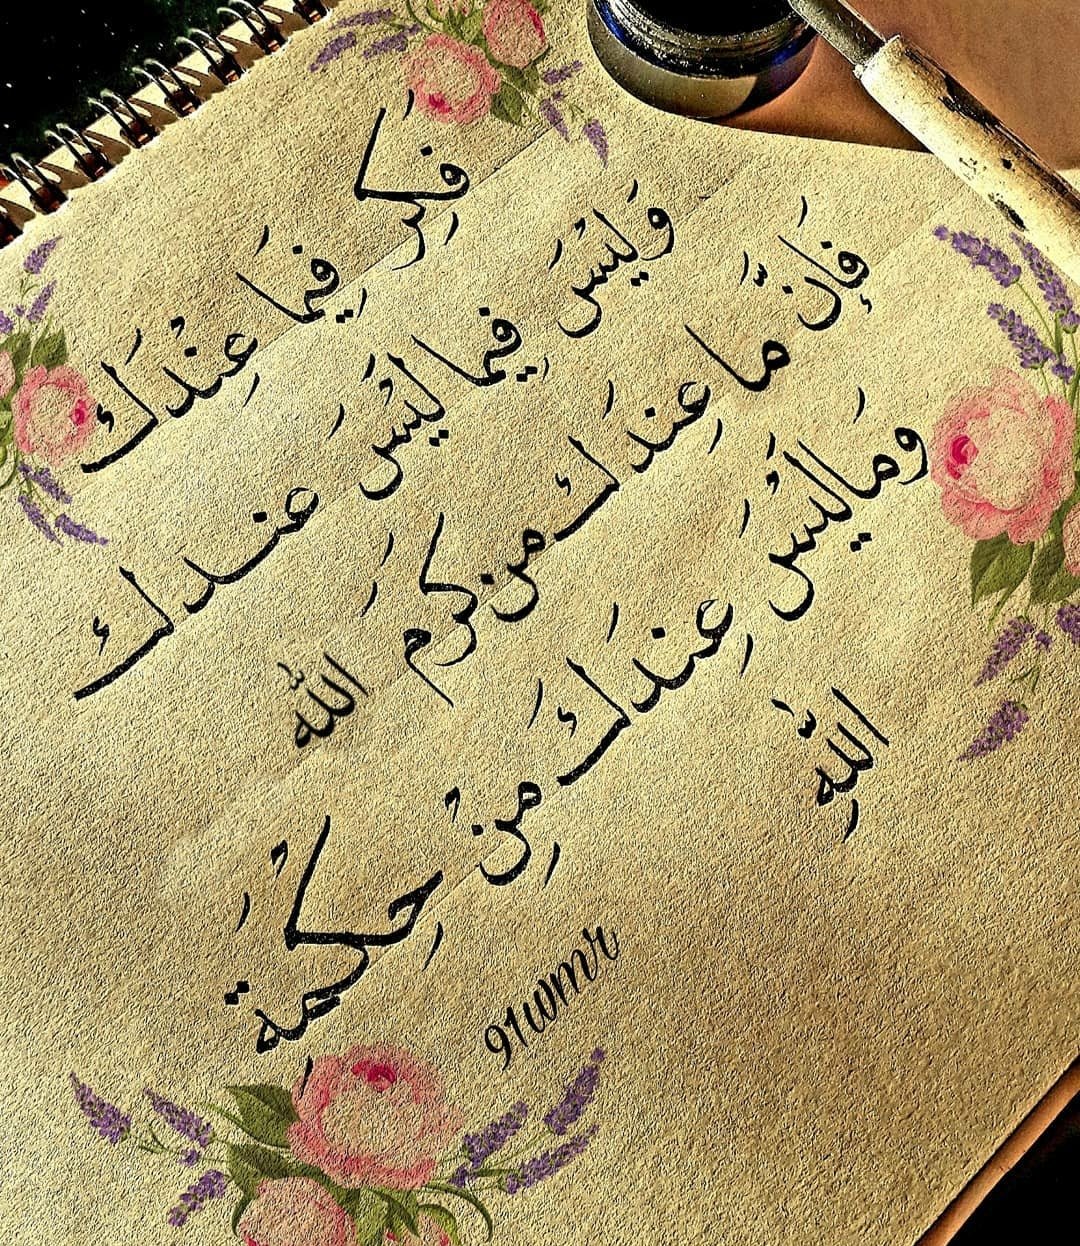 فِكر فِيمَا عِنْدَك
وَليْسَ فِيما ليْسَ عندك
فَإنَّ ما عِندَك من كرَم الله
وَمَا ليْسَ عِندَكَ مِنْ حِكْمَةِ
اللهِ
91wmr